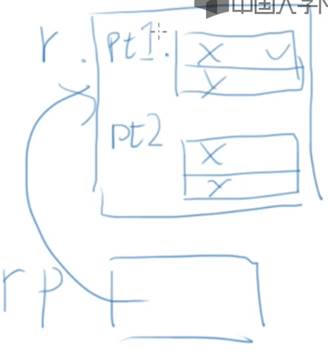 中国大学M
r. pt1. x
y
pt2
x
y
rp